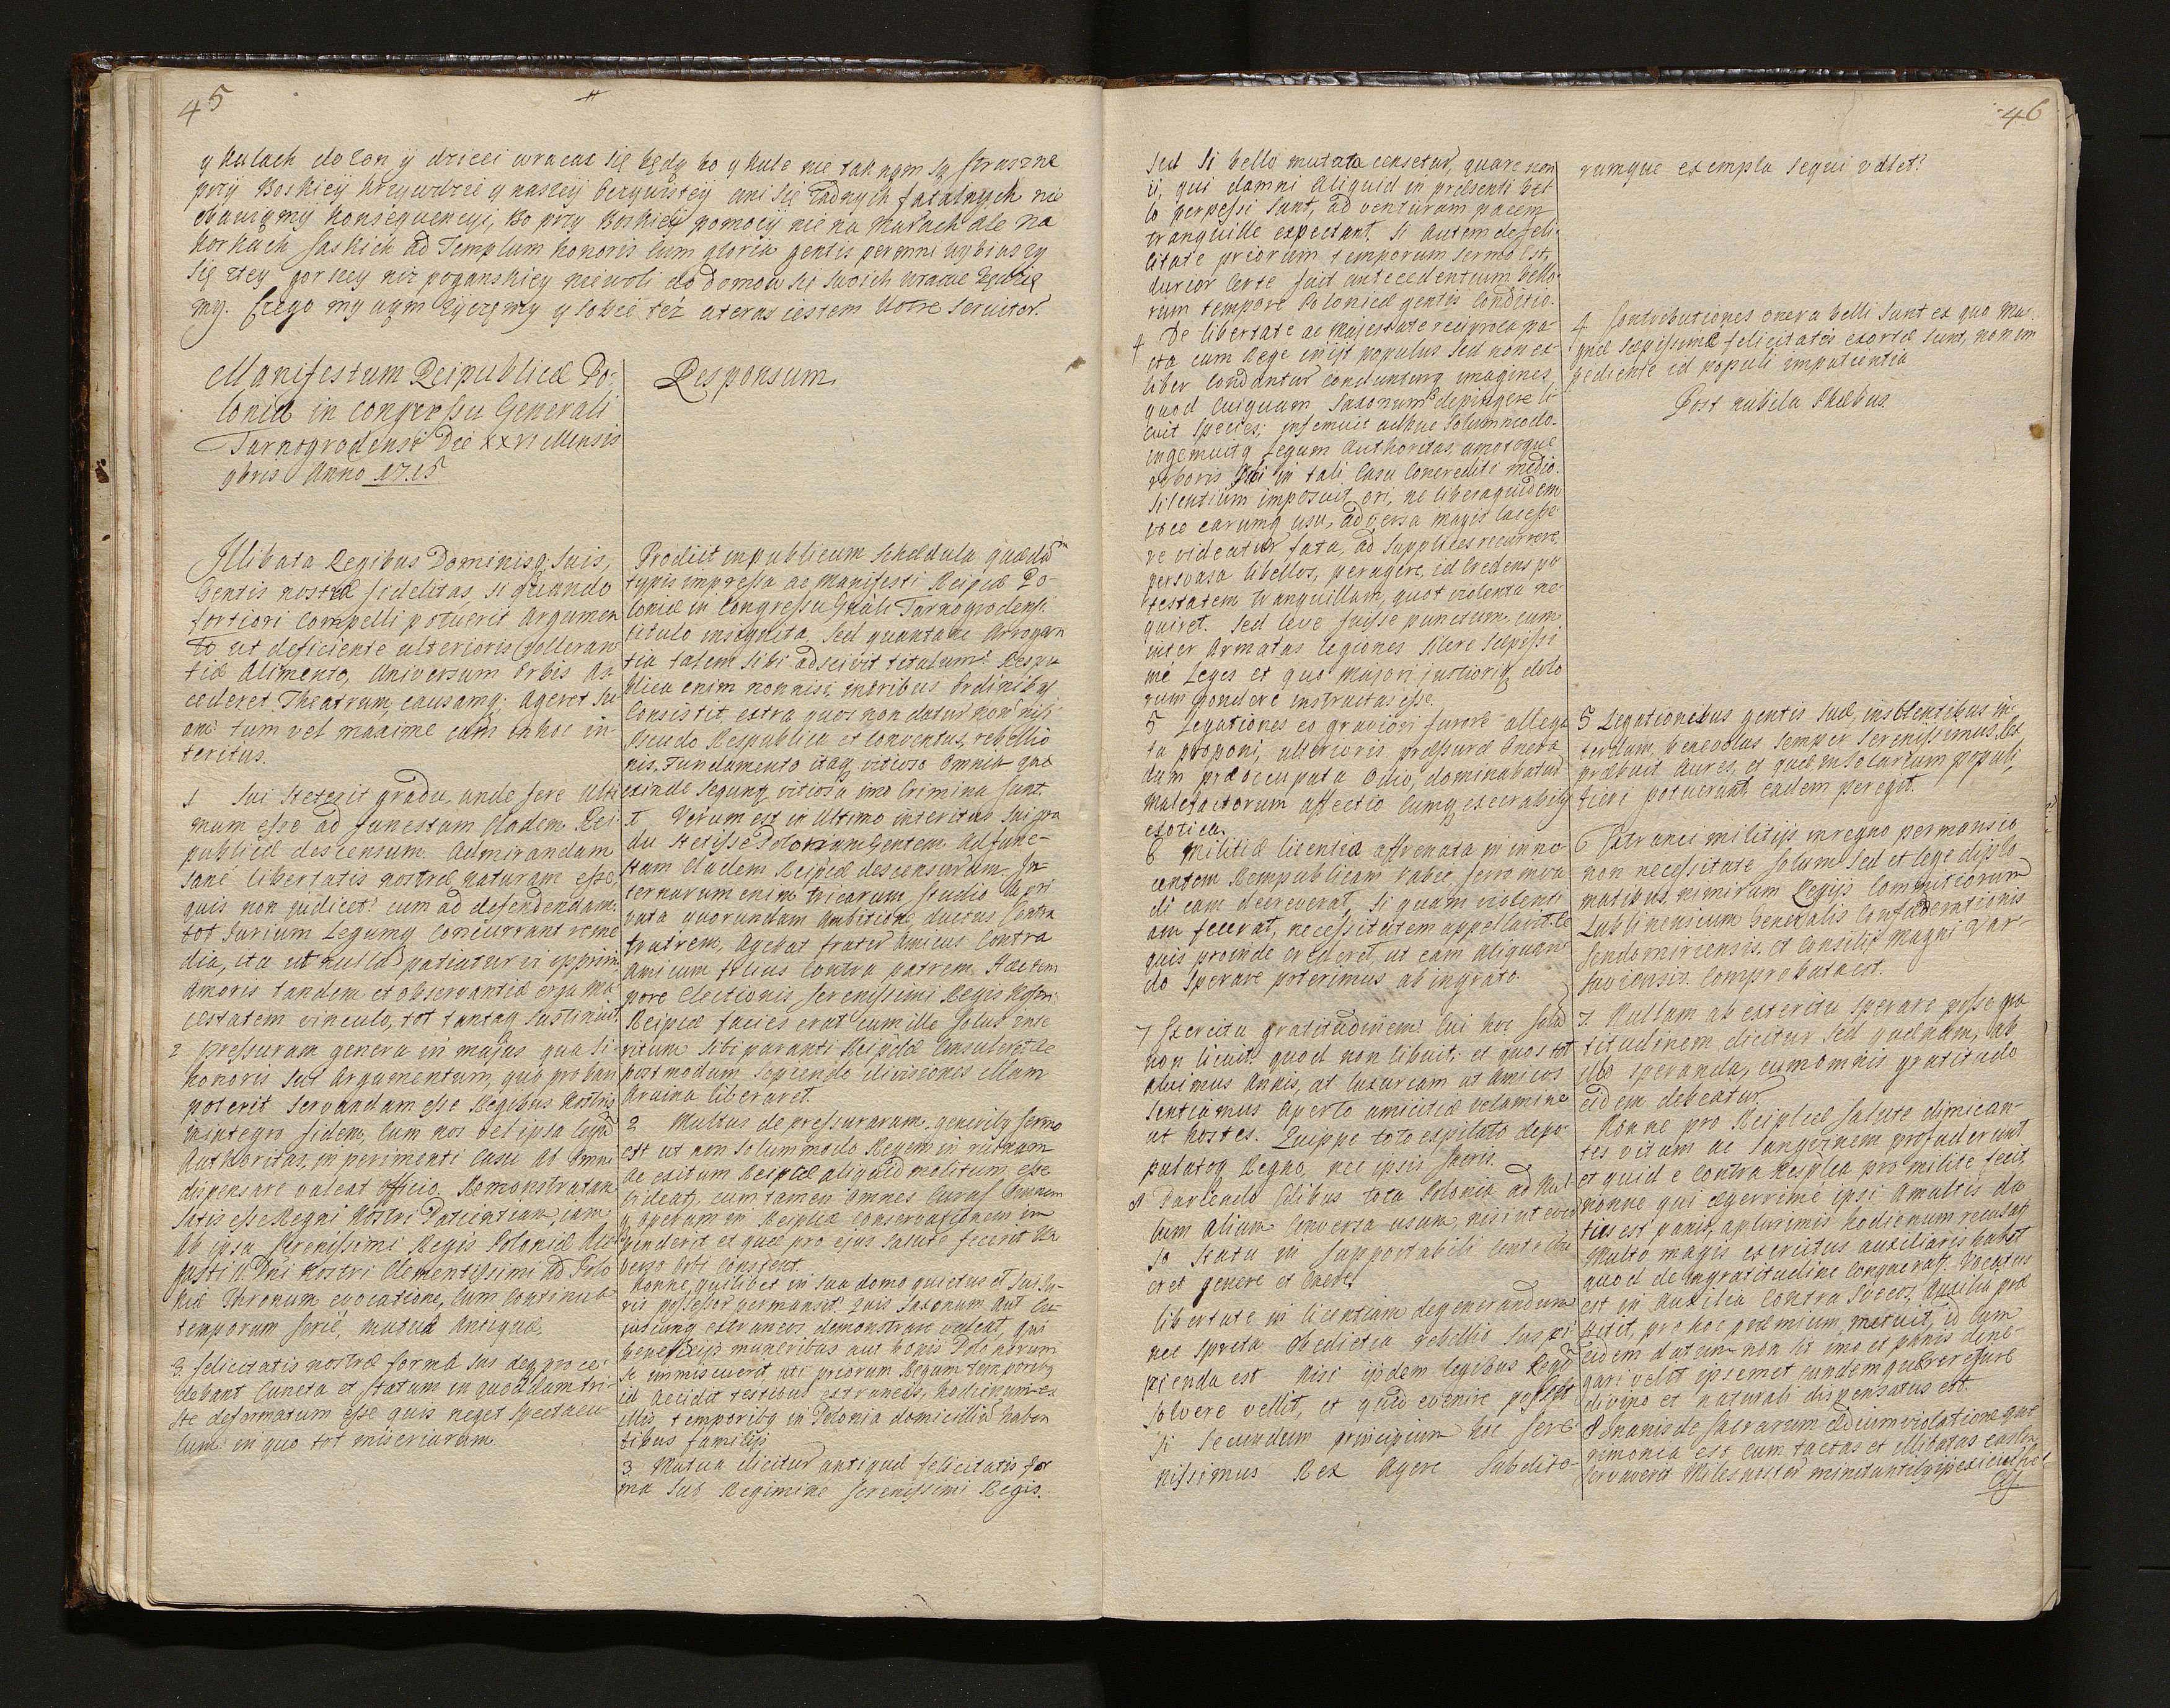 45
y kulach do zon y dzieci wracac się będę bo y kule nie tak nam są straszne
przy Boskiey krzywdzie y naszey oczywistey ani się żadnych fatalnych nie
obawiamy konsequencyi, Bo przy Boskiey pomocy nie na marach ale na
karkach saskich ad Templum honoris cum gloria gentis perenni wybiwszy
się ztey gorszey niz poganskiey niewoli do domow się swoich wracac będzie
my. Czego my wam życzemy y sobie też a teraz iestem Votre Serviteur.
Manifestum Reipublicæ Po-
loniæ in congressu Generali
Tarnogrodensi Die XXVI Mensis
9bris Anno 1715
Illibata Regibus Dominisq; Suis,
Gentis nostræ fidelitas, si quando
fortiori Compelli potuerit argumen
to ut deficiente ulterioris Tolleran
tiæ Alimento, Universum Orbis As
cederet Theatrum, causamq; ageret Su
am tum vel maxime cum in hoc in-
teritus.
1 Sui Steterit gradu, unde fere ulti
mum esse ad funestam Cladem Rei-
publicæ descensum. Admirandam
sane libertatis nostræ naturam esse,
quis non judicet? cum ad defendendam
tot Jurium Legumq Concurrant reme
dia, ita ut nulla patiatur vi opprimi
Amoris tandem et observantiæ erga Ma
iestatem vinculo, tot tantaq sustinuit
2 pressurarum genera in majus quasi
honoris sui Argumentum, quo probari
poterit servandam esse Regibus Nostris
in integro fidem, Cum nos vel ipsa legum
Authoritas, in perimenti Casu ab omni
dispensare valeat officio. Demonstratam
satis esse Regni Nostri Patientiam, iam
ab ipsa Serenissimi Regis Poloniæ Au
gusti II Dni Nostri Clementissimi ad Polo
niæ Thronum evocatione, Cum Continua
temporum serie, mutata Antiqua.
3 felicitatis nostræ forma sus deq; proce
debant Cuncta et statum in quoddam tri-
ste deformatum esse quis neget spectacu
lum: in quo tot miseriarum
Responsum
Prodiit in publicum Schædula quædam
typis impressa ac Manifesti Reipcæ Po-
loniæ in Congressu Gnali Tarnogrodensi
titulo insignita, Sed quantane Arrogan
tia talem sibi adscivit titulum? Respu
blica enim non nisi in tribus Ordinibus
Consistit, extra quos non datur non nisi
Pseudo Respublica et Conventus rebellio
nis. Fundamento itaq vitioso Omnia quæ
exinde sequunt vitiosa imo Crimina sunt
1 Verum est in Ultimo interitus sui gra
du Stetisse Polonam Gentem ad fune-
stam Cladem Reipcæ descensuram. In
ternarum enim tricarum studio à pri
vata quorundam ambitione ductus Contra
fratrem, Agebat frater Amicus Contra
Amicum filius Contra patrem. Hæc tem
pore Electionis Serenissimi Regis Nostri
Reipcæ facies erat cum ille solus inte
ritum sibi paranti Reipcæ Consuleret ac
post modum sopiendo divisiones illam
à ruina liberaret.
2 Multus de pressurarum generibq sermo
est ut non solummodo Regem in ruinam
ac exitum Reipcæ aliquid molitum esse
videat, cum tamen omnes Curas Omnem
q; operam in Reiplcæ conservationem im
penderit et quæ pro ejus salute fecerit Uni
verso Orbi Constent
Nonne quilibet in sua domo quietus et sui Ju
ris possessor permansit. Quis Saxonum aut cu
juscunq extraneos demonstrare valeat, qui
beneficijs muneribus aut bonis Polonorum
se immiscuerit, uti priorum Regum temporibq
id accidit testibus extraneis, hodiernum ex
illis temporibq in Polonia domicilium haben
tibus familijs
3 Mutua dicitur antiquæ felicitatis for
ma sub Regimine Serenissimi Regis.
46
sed si bello mutata censetur, quare non
ii, qui damni aliquid in præsenti bel
lo perpessi sunt, ad venturam pacem
tranquille expectant. Si autem de feli-
citate priorum temporum sermo est,
durior certe fuit antecedentium bello-
rum tempore Polonicæ gentis conditio.
4 De libertate ac Majestate reciproca pa-
cta cum Rege iniit populus sed non ex-
liber Condantur condunturq imagines,
quod cuiquam Saxonum depingere li
cuit species; ingemuit adhuc Solummodo.
ingemuitq Legum Authoritas, amotoque
roboris sui in tali Casu Concredite medio.
Silentium imposuit ori, ne libera quidem
voce earumq usu, adversa magis lacesse
re videatur fata, ad supplices recurrere
persvasa libellos, peragere, id Credens po
testatem tranquillam, quot violenta ne
quiret. Sed leve fuisse punctum, cum
inter Armatas legiones silere sæpissi
me Leges et quo Majori justiorisq dolo
rum pondere instructas esse.
5 Legationes eo graviori furore allega
ta proponi, ulterioris pressuræ Cuncta
dum præoccupata odio, dominabatur
Malefactorum affectio Cumq execrabilis
exotica.
6 Militiæ licentia affrenata in inno-
centem Rempublicam rabie, ferro inva
di eam decreverat, si quam violenti
am fecerat, necessitatem appellavit. E
quis proinde crederet, ut eam aliquan
do sperare poterimus ab ingrato
7 Exercitu gratitudinem? Cui hoc solum
non licuit, quod non libuit; et quos tot
aluimus Annis, at luxuriam ut Amicos
sentiamus aperto amicitiæ velamine
ut hostes. Quippe toto expilato depo
pulatoq Regno, nec ipsis Sacris.
8 Parcendo ædibus tota Polonia ad nul
lum Alium Conversa usum, nisi ut ever
so Statu in supportabili Contribu
eret genere et Cæde.
libertate in licentiam degenerandum
nec spreta obedientia rebellio susci
pienda est Nisi ijsdem legibus Regem
solvere vellit, et quid evenire posset
si Secundum principium hoc sere-
nissimus Rex Agere Subdito-
rumque exempla sequi vellet?
4 Contributiones onera belli sunt ex quo Ma-
gnæ sæpissime felicitates exortæ sunt, non im
pediente id populi impatientia
Post nubila Phæbus.
5 Legationibus gentis suæ, insolentibus in-
terdum, benevolas semper Serenissimus Rex
præbuit Aures, et quæ in solatium populi,
fieri potuerunt eadem peregit.
6 Extranei militijs in regno permansio
non necessitate solum sed et lege diplo
matibus nimirum Regijs Commitiorum
Lublinensium Generalis Confæderationis
Sendomiriensis. et Consilij Magni Var-
saviensis Comprobata est.
7 Nullam ab exercitu sperare posse gra
titudinem dicitur sed quænam, ab
illo speranda, cum omnis gratitudo
eidem debeatur.
Nonne pro Reiplcæ salute dimican-
tes vitam ac sanguinem profuderunt
et quid e contra Resplca pro milite fecit,
nonne qui ægerrime ipsi Amultis da
tus est panis, a plurimis hodienum recusat.
Multo magis exercitus auxiliaris habet
quod de ingratitudine Conquerat. Vocatus
est in Auxilia Contra Suecos, Auxilia præ
stitit, pro hoc præmium, metuit, id cum
eidem datum non sit imo et panis dene-
gari velit ipsemet eundem quærere jure
divino et naturali dispensatus est.
8 Inanis de sacrarum ædium violatione que
rimonia est cum tactas et illibatas easdem
servaverit Miles noster